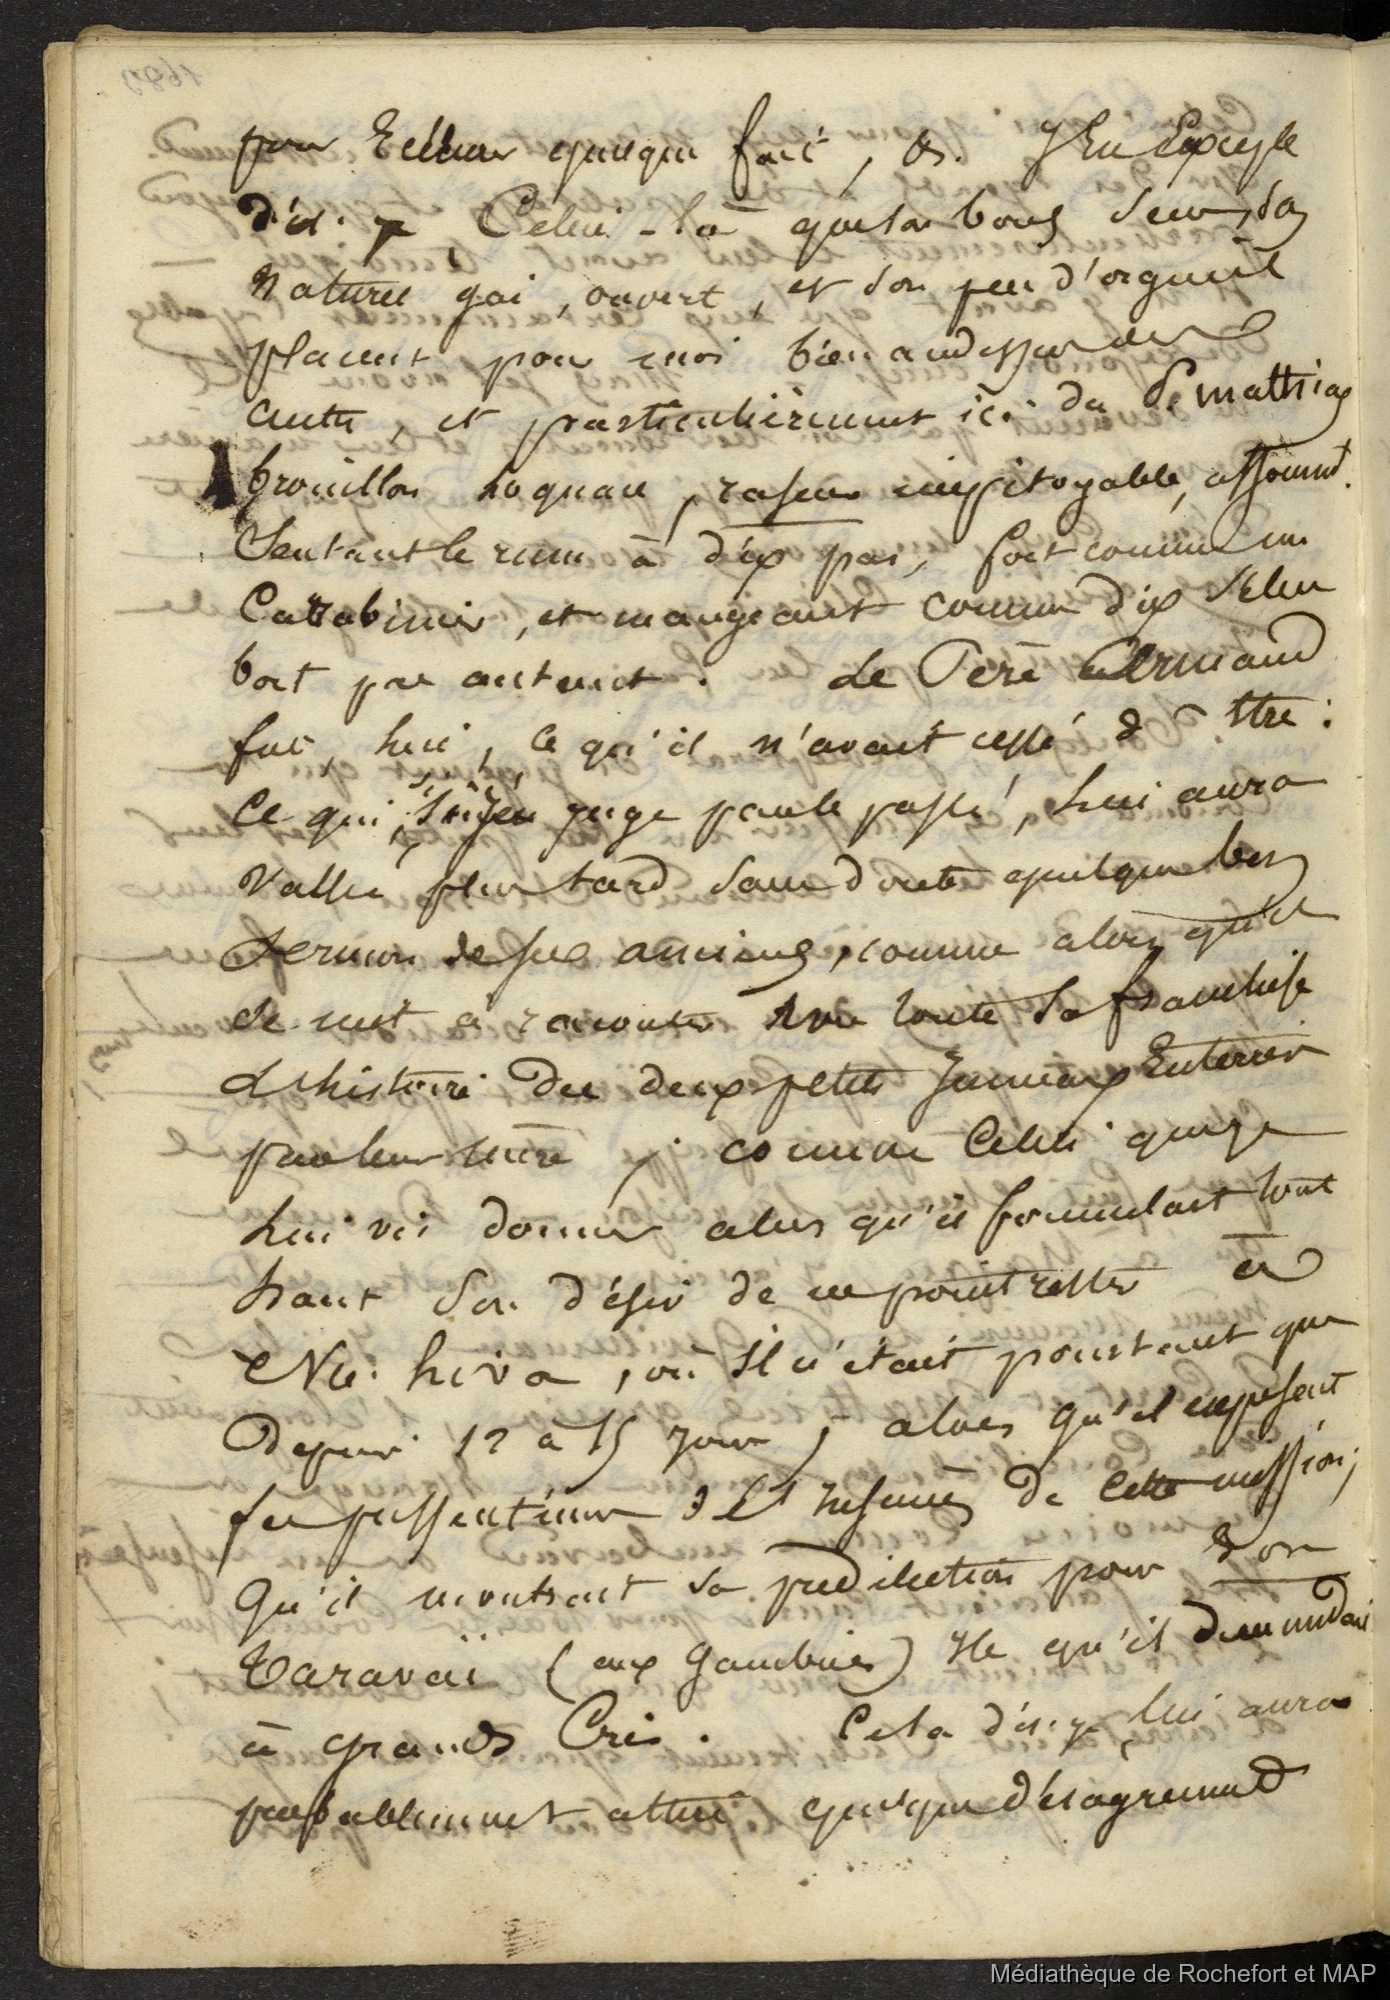 pour quelque fait, &.
d'ici. Celui-là que son bons sens, son
Naturel gai, ouvert, et son peu d'orgueil
placent pour moi bien audessus des
autres, et particulièrement ici du P. Mathias
brouillon loquace, raseur impitoyable, assomt.
Sentant le rum à dix pas, fort comme un
Carabinier, et mangeant comme dix
Le Père Armand
fut, lui, ce qu'il n'avait cessé d'être :
Ce qui, si j'en juge par le passé, lui aura
Vallu plus tard sans doute quelque bon
sermon de ses anciens, comme alors qu'il
se mit à raconter avec toute sa franchise
L'histoire des deux petits Jumeaux Enterrés
par leur mère ; comme Celui que je
lui vis donner alors qu'il formulait tout
haut son désir de ne point rester à
Nu-hiva, où il n'était pourtant que
Depuis 12 à 15 jours ; alors qu'il exposait
ses de cette mission ;
Qu'il montrait sa prédilection pour son
Taravaï (aux Gambier) Ile qu'il demandait
à grands Cris. Cela lui aura
probablement attiré quelque désagrément
Médiathèque de Rochefort et MAP